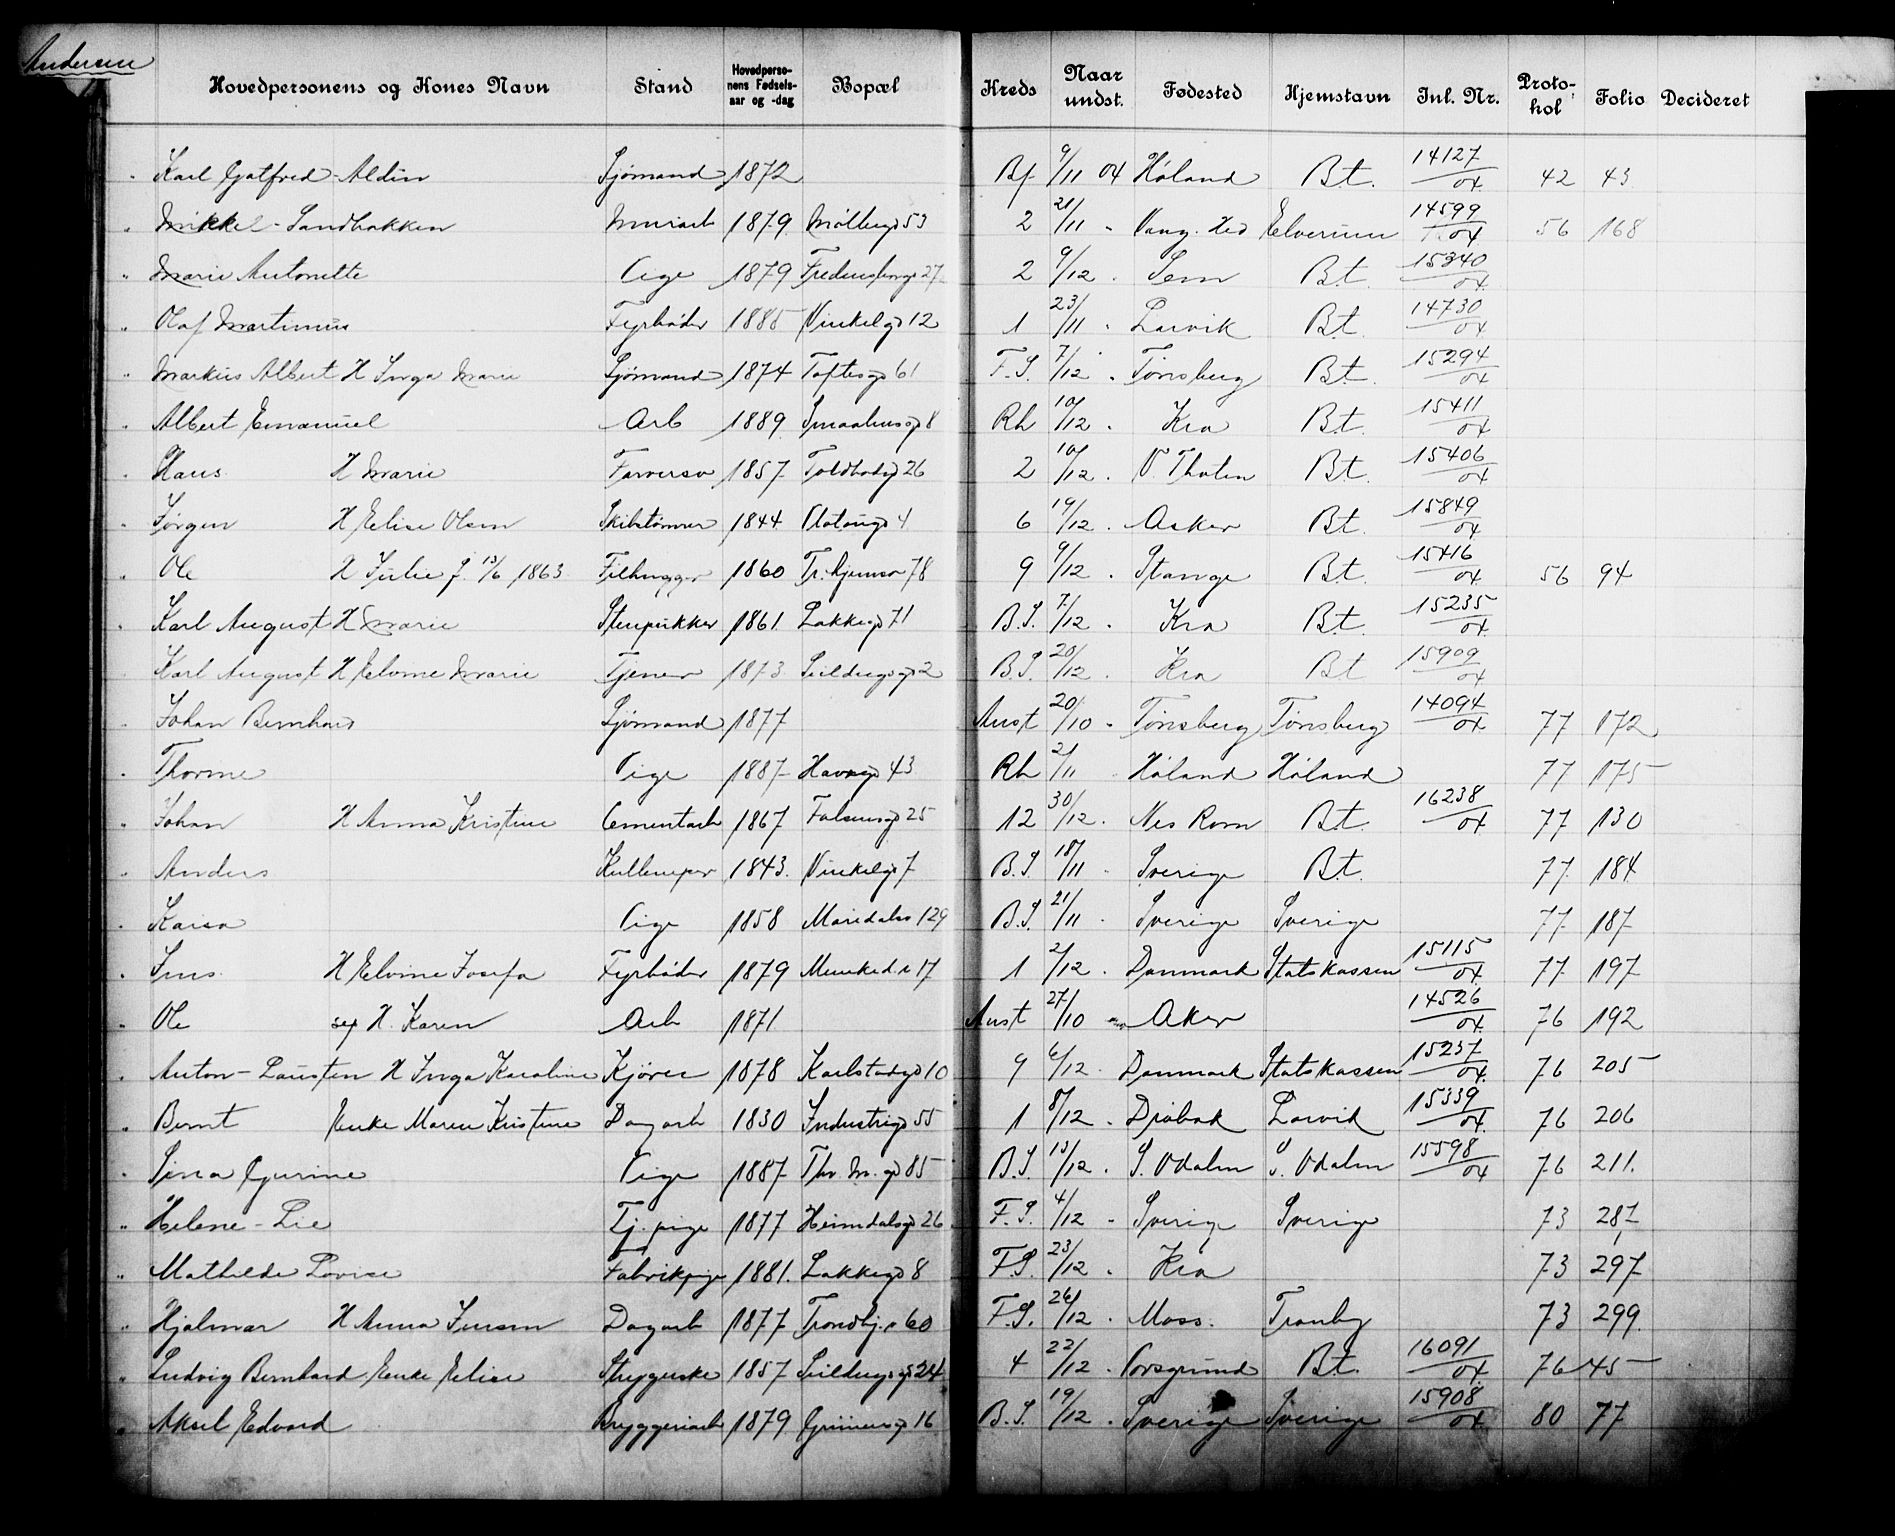 Andersen
Hovedpersonens og Kones Navn Stand Hovedpersonens Fødselsaar og -dag Bopæl Kreds Naar undst. Fødested Hjemstavn Jnl. Nr. Protokol Folio Decideret
" Karl Gotfred - Aldin Sjömand 1872 Bf 9/11 04 Höland Bt. 14127/04 42 43
" Mikkel - Sandbakken Murarb 1879 Möllergd 53 2 21/11 " Vang. Hed Elverum 14599/04 56 168
" Marie Antonette Pige 1879 27 2 9/12 " Sem Bt. 15340/04
" Olaf Martinius Fyrböder 1885 Vinkelgd 12 1 23/11 " Larvik Bt. 14730/04
" Markus Albert H Inga Marie Sjömand 1874 Toftesgd 61 F.S. 7/12 " Tönsberg Bt. 15294/04
" Albert Emanuel Arb 1889 Smaalensgd 8 Rh 10/12 " Kra Bt. 15411/04
" Hans H Marie Farversv 1857 Toldbodgd 26 2 10/12 " V. Thoten Bt. 15406/04
" Jörgen H Elise Olsen Skibstömmer 1844 Platousgd 4 6 19/12 " Asker Bt. 15849/04
" Ole H Julie f. 13/6 1863 Filhugger 1860 Tr.hjemsv 78 9 9/12 " Stange Bt. 15416/04 56 94
" Karl August H Marie Stenpukker 1861 Lakkegd 71 B.S. 7/12 " Kra Bt. 15235/04
" Karl August H Elvine Marie Tjener 1873 Seildugsgd 2 B.S. 20/12 " Kra Bt 15909/04
" Johan Bernhard Sjömand 1877 Anst 20/10 " Tönsberg Tönsberg 14094/04 77 172
" Thorine Pige 1887 Havnegd 43 Rh 2/11 Höland Höland 77 175
" Johan H Anna Kristine Cementarb 1867 Falsensgd 25 12 30/12 " Nes Rom Bt. 16238/04 77 130
" Anders 1843 Vinkelgd 7 B.S. 18/11 " Sverige Bt. 77 184
" Kaisa Pige 1858 Maridalsv 129 B.S. 21/11 " Sverige Sverige 77 187
" Jens H Elvine Josefa Fyrböder 1879 Munked.v 17 1 2/12 " Danmark Statskassen 15115/04 77 197
" Ole sep H. Karen Arb 1871 Anst 27/10 Aker 14526/04 76 192
" Anton - Lausten H Inga Karoline Kjörer 1878 Karlstadgd 10 9 6/12 " Danmark Statskassen 15237/04 76 205
" Bernt Enke Maren Kristine Dagarb 1830 Industrigd 55 1 8/12 " Dröbak Larvik 15339/04 76 206
" Sina Gurine Pige 1887 Thv. M. gd 85 B.S. 13/12 " S. Odalen S. Odalen 15598/04 76 211.
" Helene - Lie Tj. pige 1877 Heimdalsgd 26 F.S. 4/12 " Sverige Sverige 73 287
" Mathilde Lovise Fabrikpige 1881. Lakkegd 8 F.S. 23/12 " Kra 73 297
" Hjalmar H Anna Jensen Dagarb 1877 Trondhj.v 60 F.S. 24/12 " Moss. Tranby 73 299
" Ludvig Bernhard Enke Elise Strygerske 1857 Seildugsgd 24 4 22/12 " Porsgrund Bt. 16091/04 76 45
" Aksel Edvard Bryggeriarb 1879 Grünersgd 16 B.S. 19/12 " Sverige Sverige 15908/04 80 77